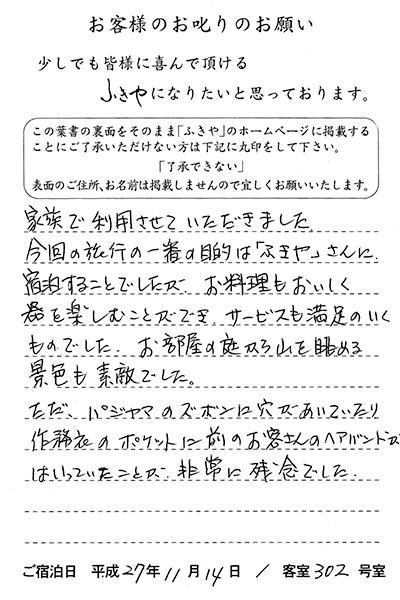 お客様のお叱りのお願い
少しでも皆様に喜んで頂ける
ふきやになりたいと思っております。
この葉書の裏面をそのまま「ふきや」のホームページに掲載する
ことにご了承いただけない方は下記に丸印をして下さい。
「了承できない」
表面のご住所、お名前は掲載しませんので宜しくお願いいたします。
家族で利用させていただきました。
今回の旅行の一番の目的は「ふきや」さんに
宿泊することでしたが、お料理もおいしく
器を楽しむことができ、サービスも満足のいく
ものでした。お部屋の庭から山を眺める
景色も素敵でした。
ただ、パジャマのズボンに穴があいていたり
作務衣のポケットに前のお客さんのヘアバンドが
はいっていたことが、非常に残念でした。
ご宿泊日 平成27年11月14日 / 客室302号室